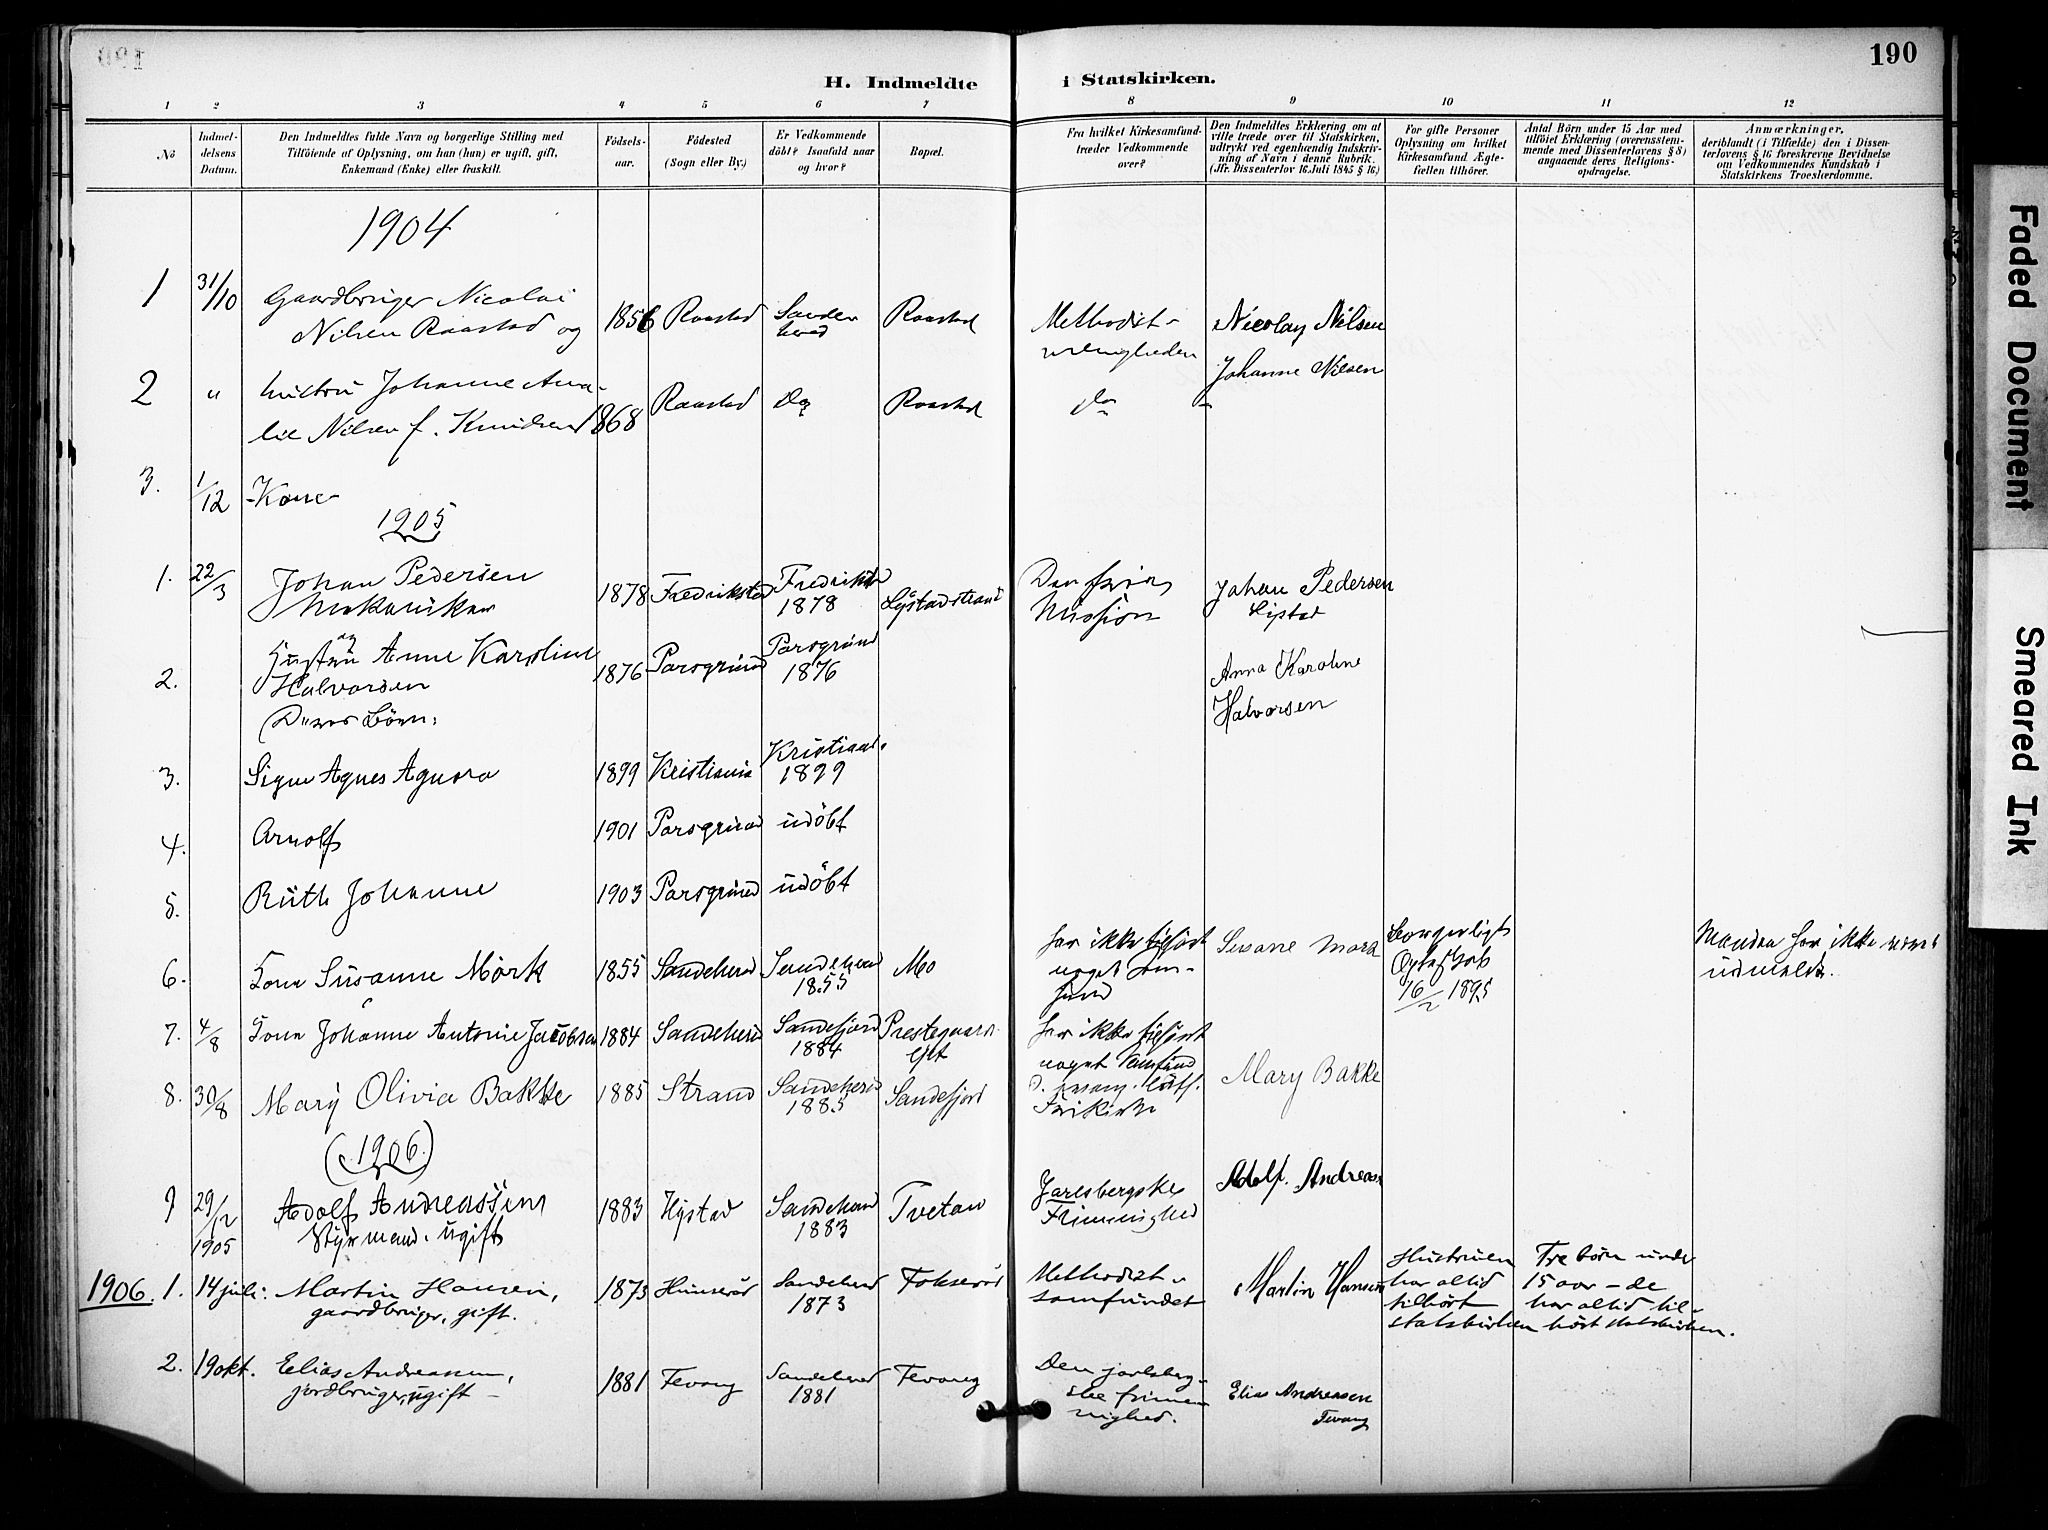 190
H. Indmeldte i Statskirken.
1 2 3 4 5 6 7 8 9 10 11 12
No
Indmel-
delsens
Datum.
Den Indmeldtes fulde Navn og borgerlige Stilling med
Tilföiende af Oplysning, om han (hun) er ugift, gift,
Enkemand (Enke) eller fraskilt.
Födsels-
aar.
Födested
(Sogn eller By.)
Er Vedkommende
döbt? Isaafald naar
og hvor?
Bopæl.
Fra hvilket Kirkesamfund-
træder Vedkommende
over?
Den Indmeldtes Erklæring om at
ville træde over til Statskirken,
udtrykt ved egenhændig Indskriv-
ning af Navn i denne Rubrik.
(Jfr. Dissenterlov 16 Juli 1845 § 16)
For gifte Personer
Oplysning om hvilket
Kirkesamfund Ægte-
fællen tilhörer.
Antal Börn under 15 Aar med
tilföiet Erklæring (overensstem-
mende med Dissenterlovens § 8)
angaaende deres Religions-
opdragelse.
Anmærkninger,
deriblandt (i Tilfælde) den i Dissen-
terlovens § 16 foreskrevne Bevidnelse
om Vedkommendes Kundskab i
Statskirkens Troeslærdomme.
1904
1 31/10 Gaardbruger Nicolai
Nilsen Raastad og 1856 Raastad Sande
herad Raastad Methodist-
menigheden Nicolay Nilsen
2 " hustru Johanne Ama-
lie Nilsen f. Knudsen 1868 Raastad Do Raastad do Johanne Nilsen
3. 1/12 -Kone-
1905
1. 22/3 Johan Pedersen
Mekaniker 1878 Fredrikstad Fredrikstad
1878 Lystadstrand Den frie
Mission Johan Pedersen
Lystad
2. og
Hustru Anne Karoline
Halvorsen 1876 Porsgrund Porsgrund
1876 Anna Karoline
Halvorsen
Deres Börn:
3. Signe Agnes Agnora 1899 Kristiania Kristiania
1899
4. Arnolf 1901 Porsgrund udöbt
5. Ruth Johanne 1903 Porsgrund udöbt
6. Tone Susanne Mörk 1855 Sandeherd Sandeherd
1855 Mo har ikke tilhört
noget Sam-
fund Susane Mörk Borgerligt
16/2 1895 Manden har ikke været
udmeldt.
7. 4/8 Tone Johanne Antonie Jacobsen 1884 Sandeherd Sandefjord
1884 har ikke tilhört
noget Samfund
8. 30/8 Mary Olivia Bakke 1885 Strand Sandeherd
1885 Sandefjord D. evang. luth.
Frikirke Mary Bakke
(1906.)
9 29/12
1905 Adolf Andreassen
Styrmand. ugift 1883 Hystad Sandeherd
1883 Tvetan Jarlsbergske
Frimenighed Adolf. Andreasen
1906. 1. 14 juli: Martin Hansen,
gaardbruger, gift. 1873 Hunsröd Sandeherd
1873 Fokseröd Methodist-
samfundet Martin Hansen Hustruen
har altid
tilhört
statskirken Tre börn under
15 aar - de
har altid til-
hört statskirken.
2. 19 okt. Elias Andreasen,
jordbruger, ugift - 1881 Tevang Sandeherd
1881 Tevang Den jarlsberg-
ske frime-
nighed. Elias Andreasen
Tevang
Faded Document
Smeared Ink